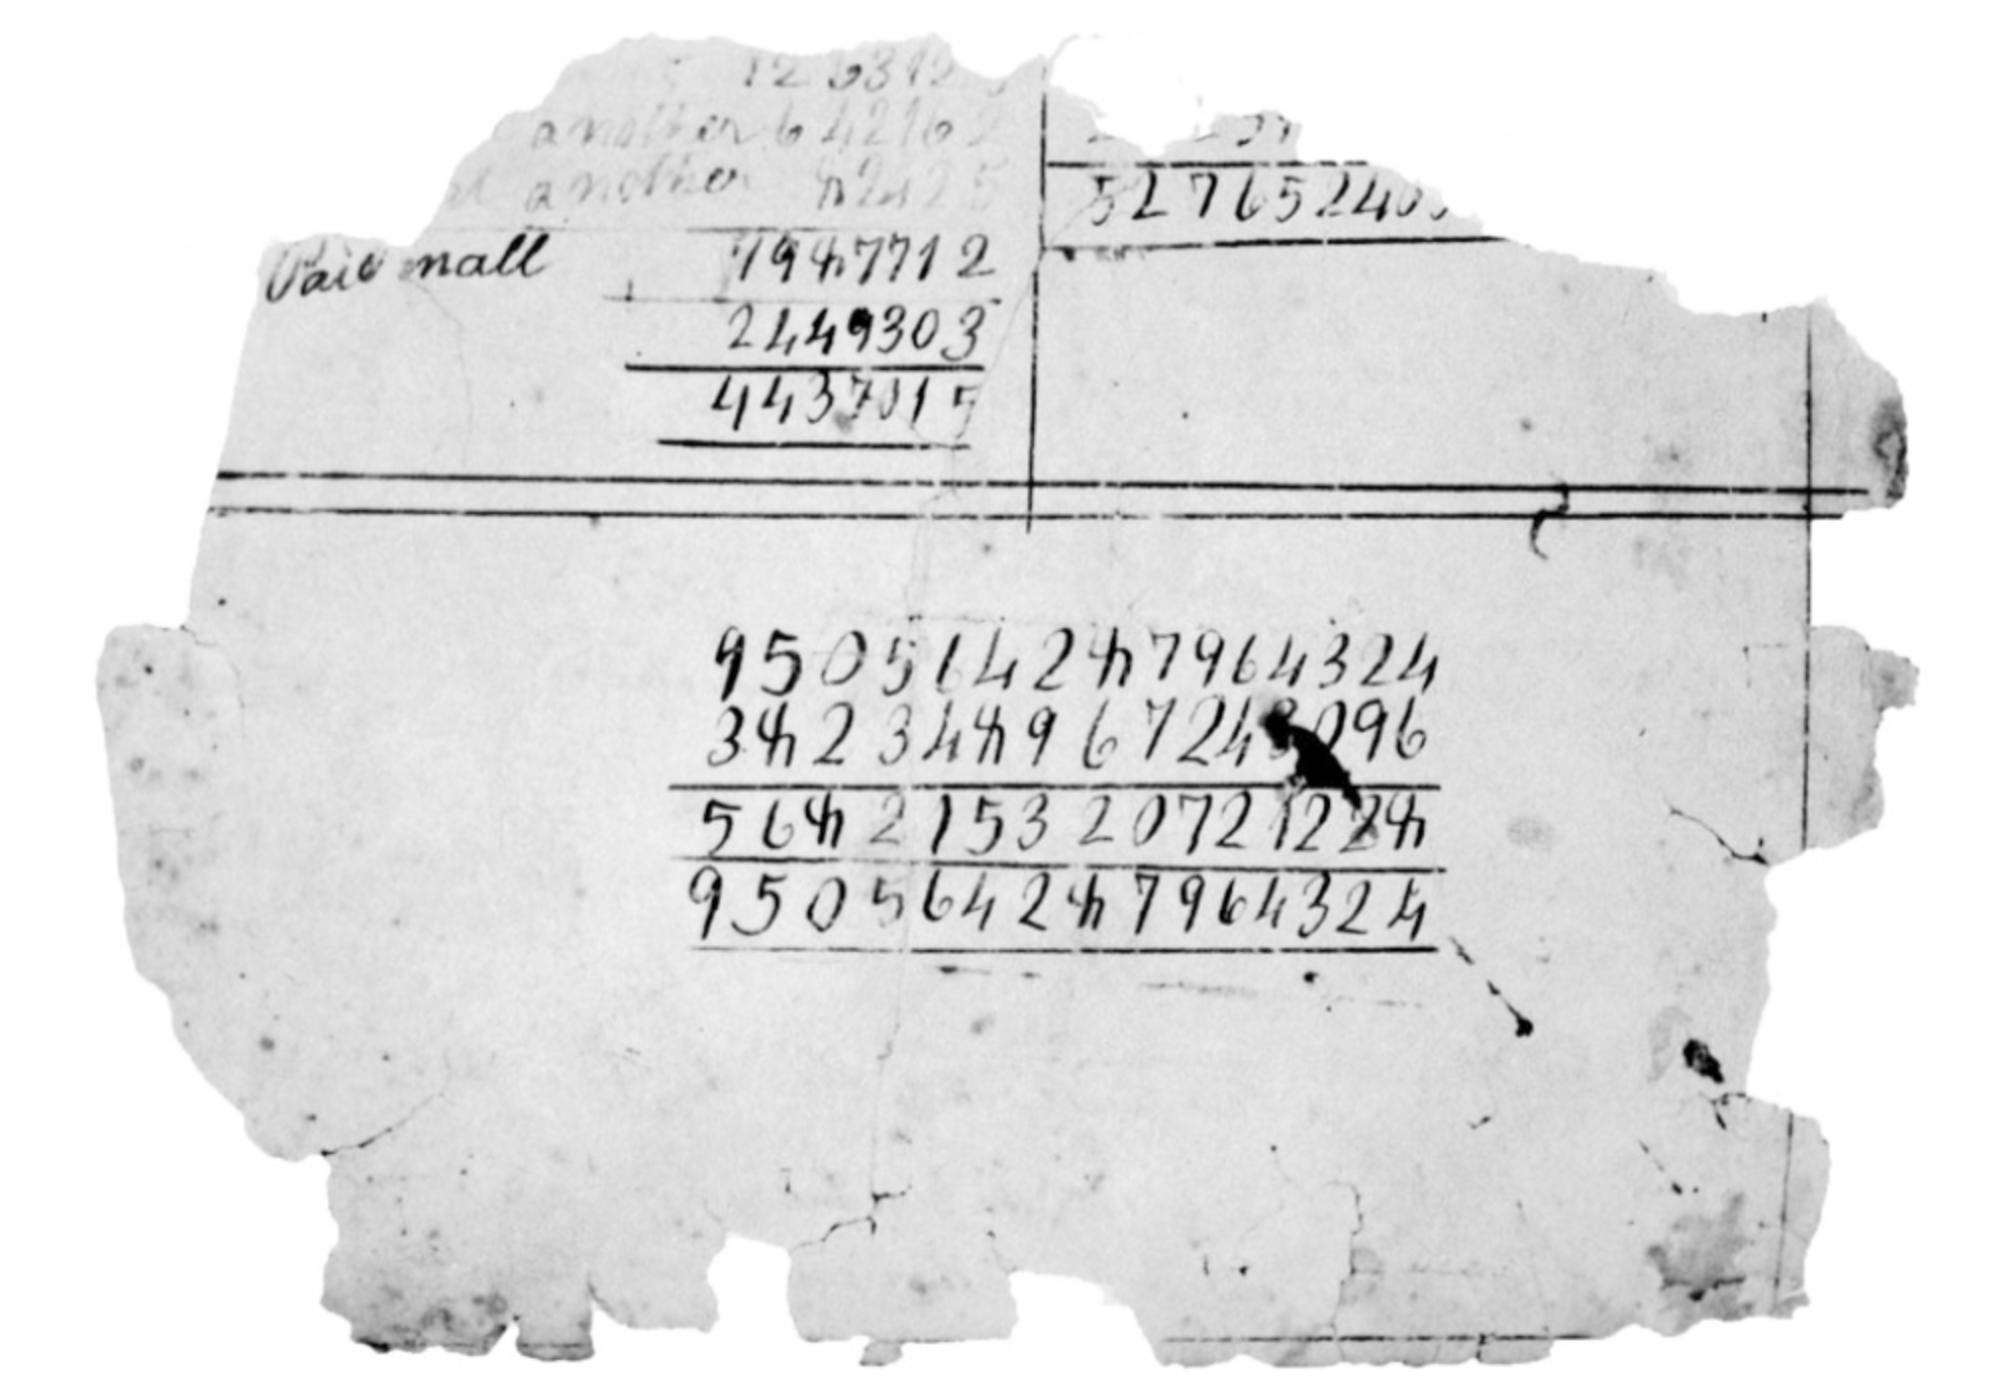 1263125
another 642162
another 82425
Paid in all 1987712
2449303
4437015
52765240
950564287964324
382348967243096
568215320721228
950564287964324